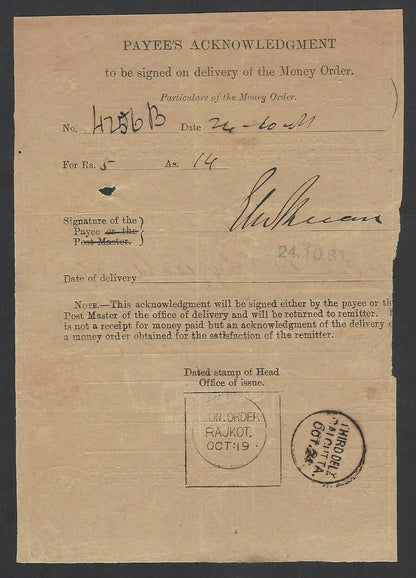 PAYEE'S ACKNOWLEDGMENT
to be signed on delivery of the Money Order.
Particulars of the Money Order.
No. 4256B Date
For Rs. 5 As. 14
Signature of the
Payee or the
Post Master.
24.10.81.
Date of delivery
NOTE.—This acknowledgment will be signed either by the payee or th
Post Master of the office of delivery and will be returned to remitter. I
is not a receipt for money paid but an acknowledgment of the delivery o
a money order obtained for the satisfaction of the remitter.
Dated stamp of Head
Office of issue.
MON. ORDER
RAJKOT.
OCT:19
THIRD DELY.
CALCUTTA
OCT. 24